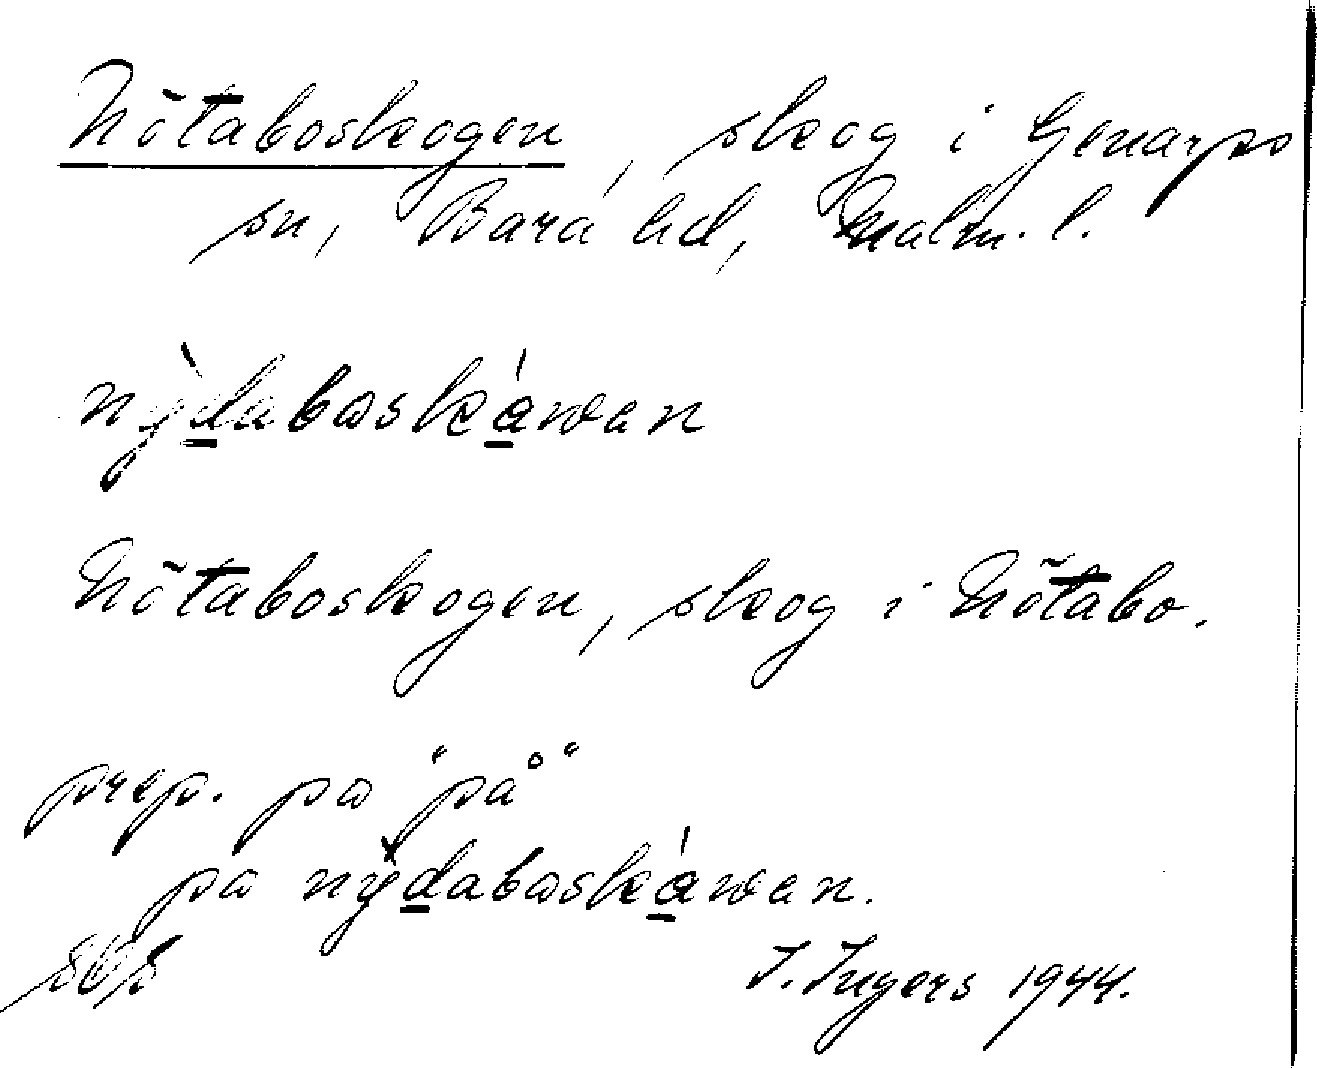 Nötaboskogen, skog i Genarps
sn, Bara hd, Malm. l.
nỳdabωskáwən
Nötaboskogen, skog i Nötabo.
prep. pω "på"
pω nỳdabωskáwən.
I. Ingers 1944.